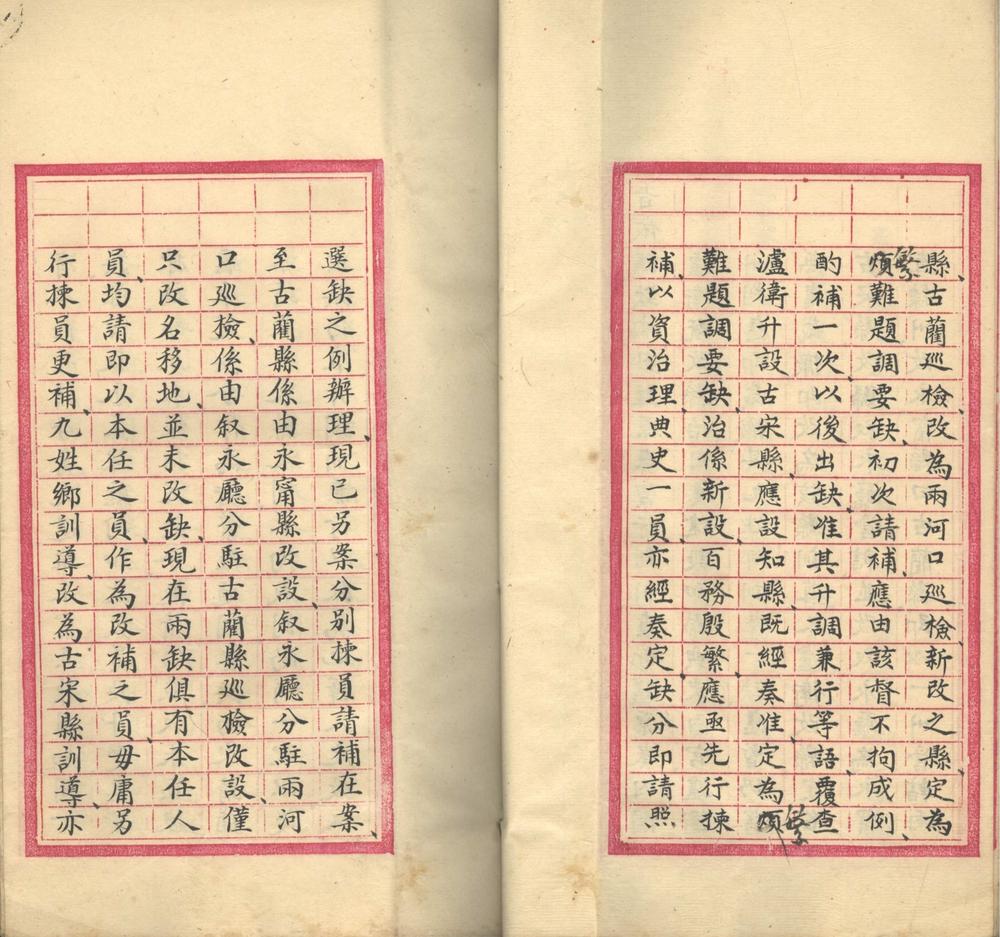 縣、古藺巡檢、改為兩河口巡檢、新改之縣、定為
煩繁難題調要缺、初次請補、應由該督不拘成例、
酌補一次、以後出缺、准其升調兼行等語、覆查
瀘衛升設古宋縣、應設知縣、既經奏准、定為煩繁
難題調要缺、治係新設、百務殷繁、應亟先行揀
補、以資治理、典史一員、亦經奏定缺分、即請照
選缺之例辦理、現已另案分別揀員請補在案、
至古藺縣係由永甯縣改設、叙永廳分駐兩河
口巡檢、係由叙永廳分駐古藺縣巡檢改設、僅
只改名移地、並未改缺、現在兩缺俱有本任人
員、均請即以本任之員、作為改補之員、毋庸另
行揀員更補、九姓鄉訓導、改為古宋縣訓導、亦